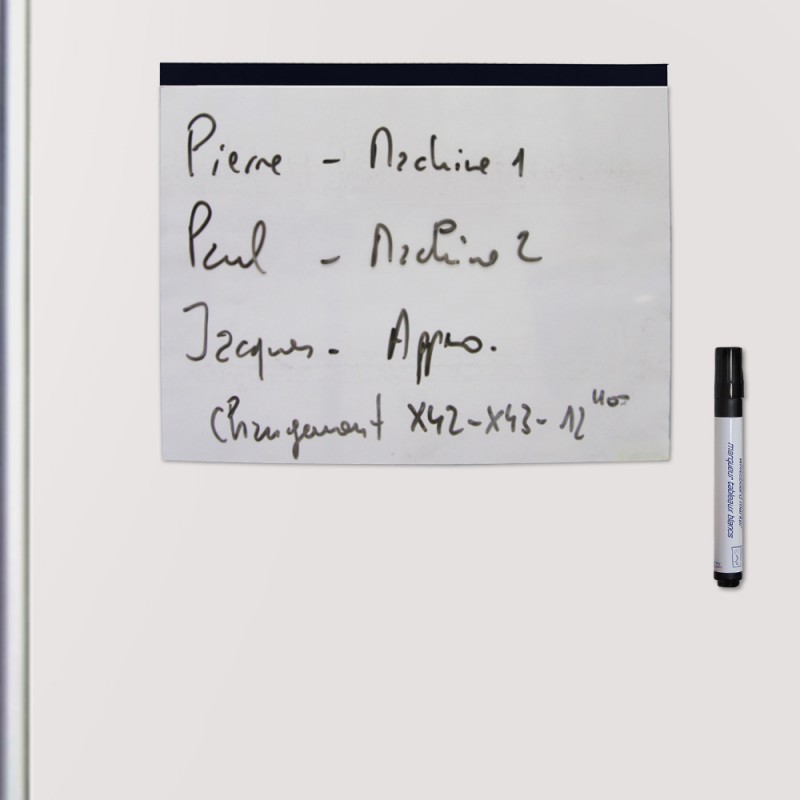 Pierre - Machine 1
Paul - Machine 2
Jacques - Appro.
Changement X42-X43- 12
marqueur tableaux blancs